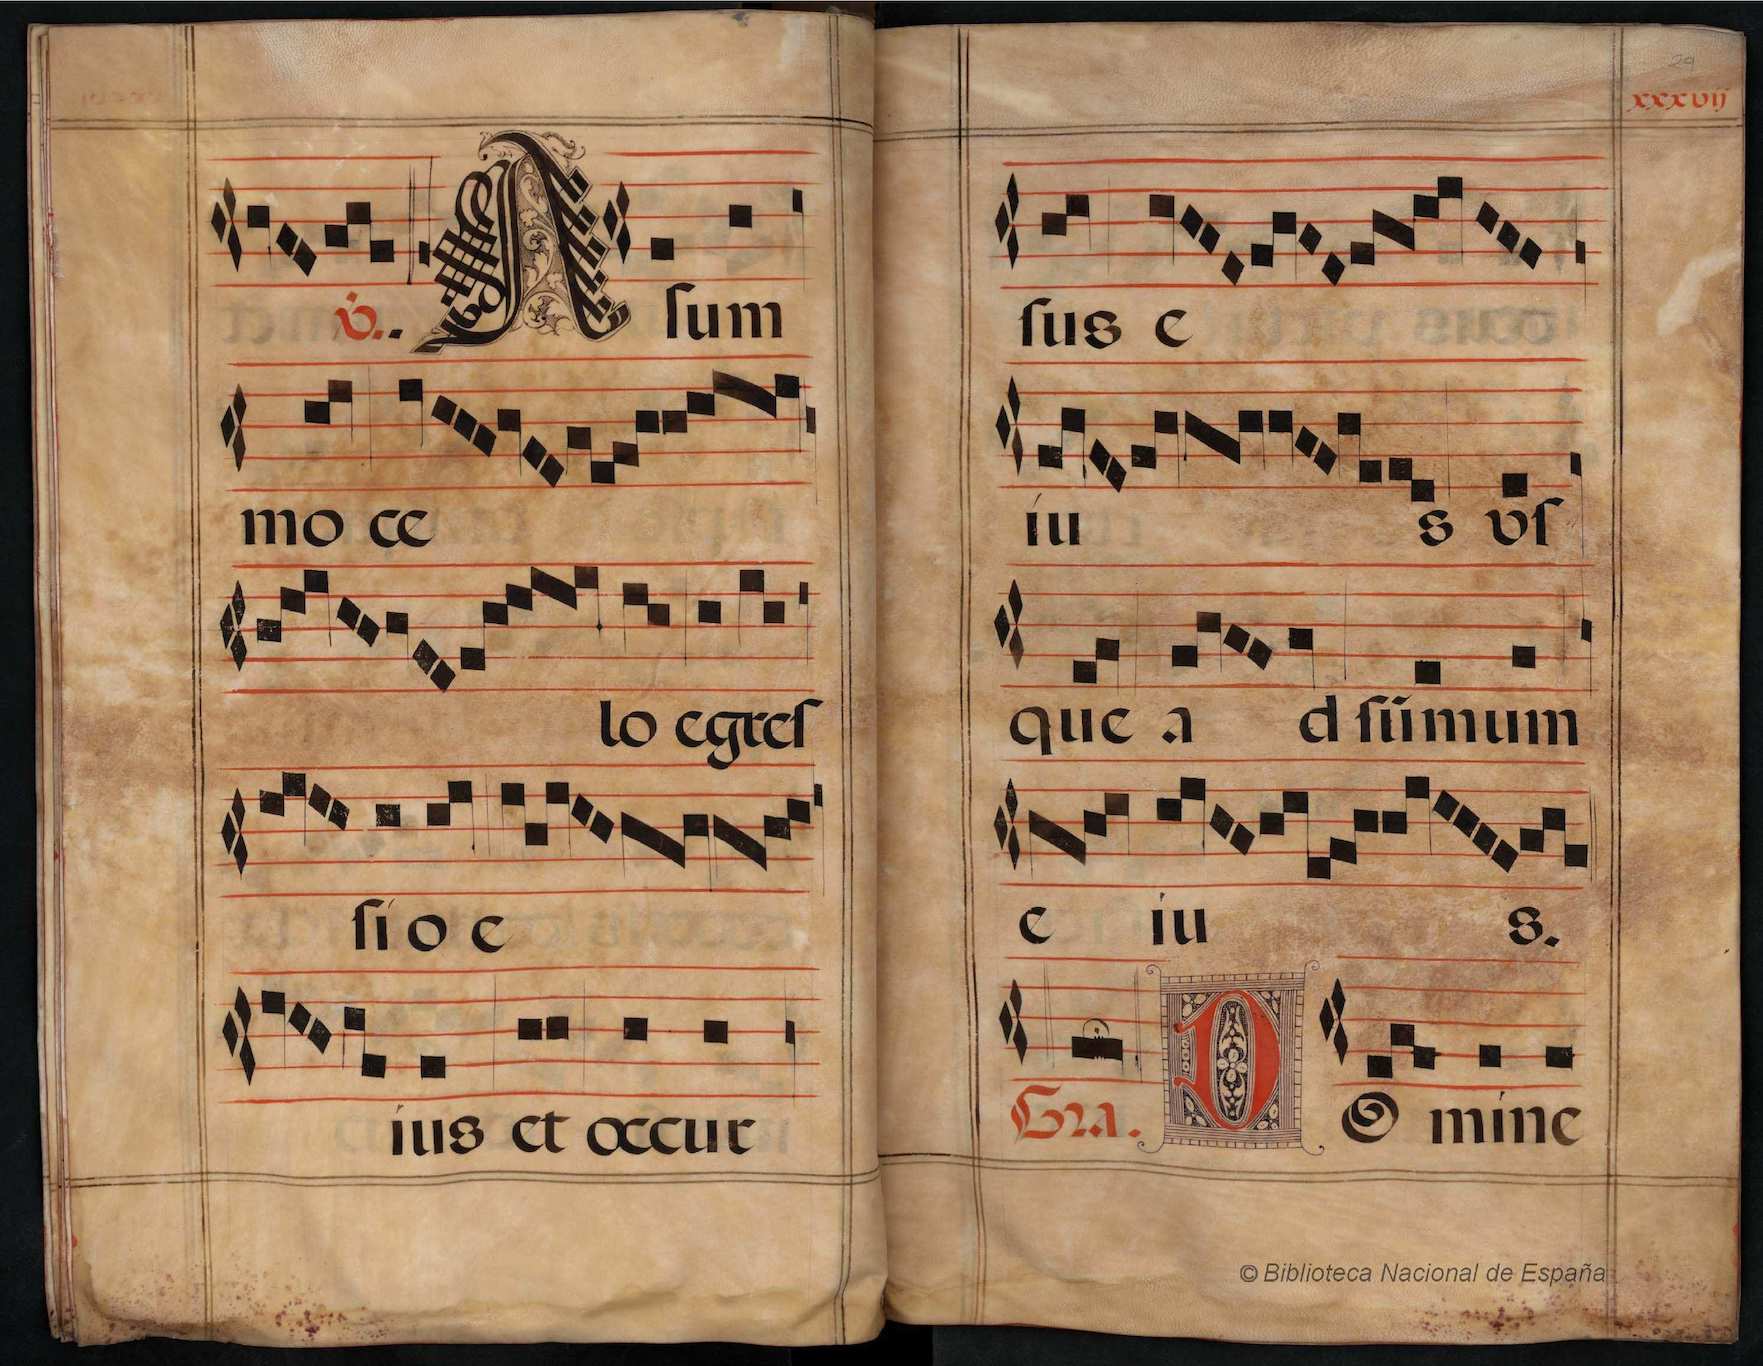 ℣. A sum
mo ce
lo egres
sio e
ius et occur
29
xxxvij
sus e
iu s us
que a d sūmum
e iu s.
Gra. DO mine
© Biblioteca Nacional de España